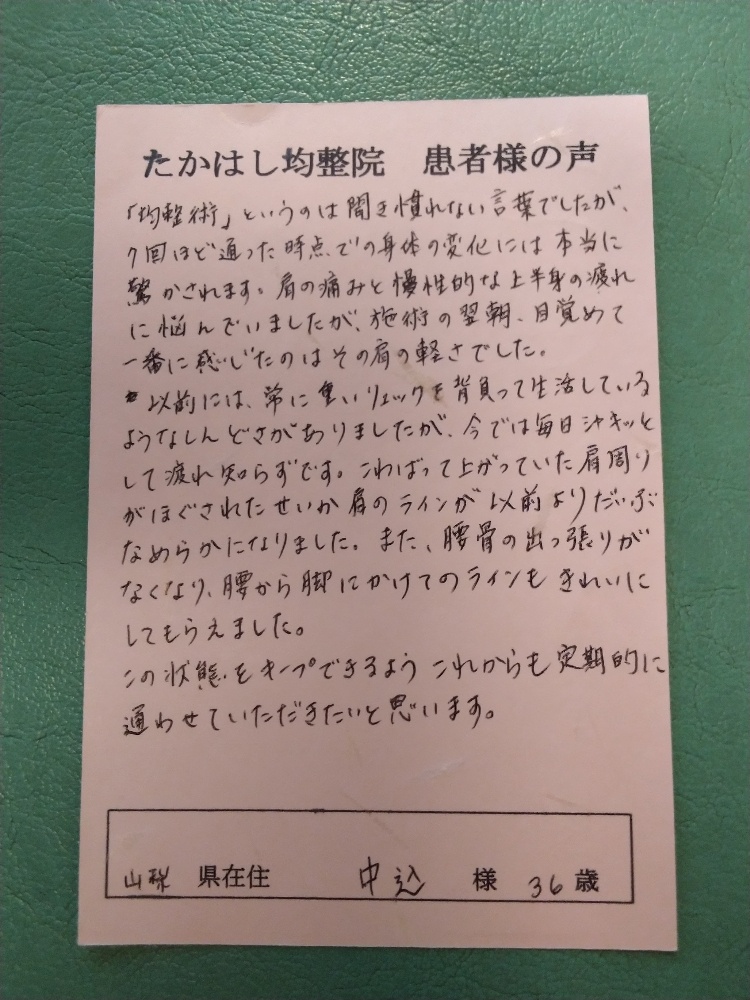 たかはし均整院　患者様の声
「均整術」というのは聞き慣れない言葉でしたが、
7回ほど通った時点での身体の変化には本当に
驚かされます。肩の痛みと慢性的な上半身の疲れ
に悩んでいましたが、施術の翌朝、目覚めて
一番に感じたのはその肩の軽さでした。
以前には、常に重いリュックを背負って生活している
ようなしんどさがありましたが、今では毎日シャキッと
して疲れ知らずです。こわばって上がっていた肩周り
がほぐされたせいか肩のラインが以前よりだいぶ
なめらかになりました。また、腰骨の出っ張りが
なくなり、腰から脚にかけてのラインもきれいに
してもらえました。
この状態をキープできるようこれからも定期的に
通わせていただきたいと思います。
山梨 県在住　中込　様　36歳